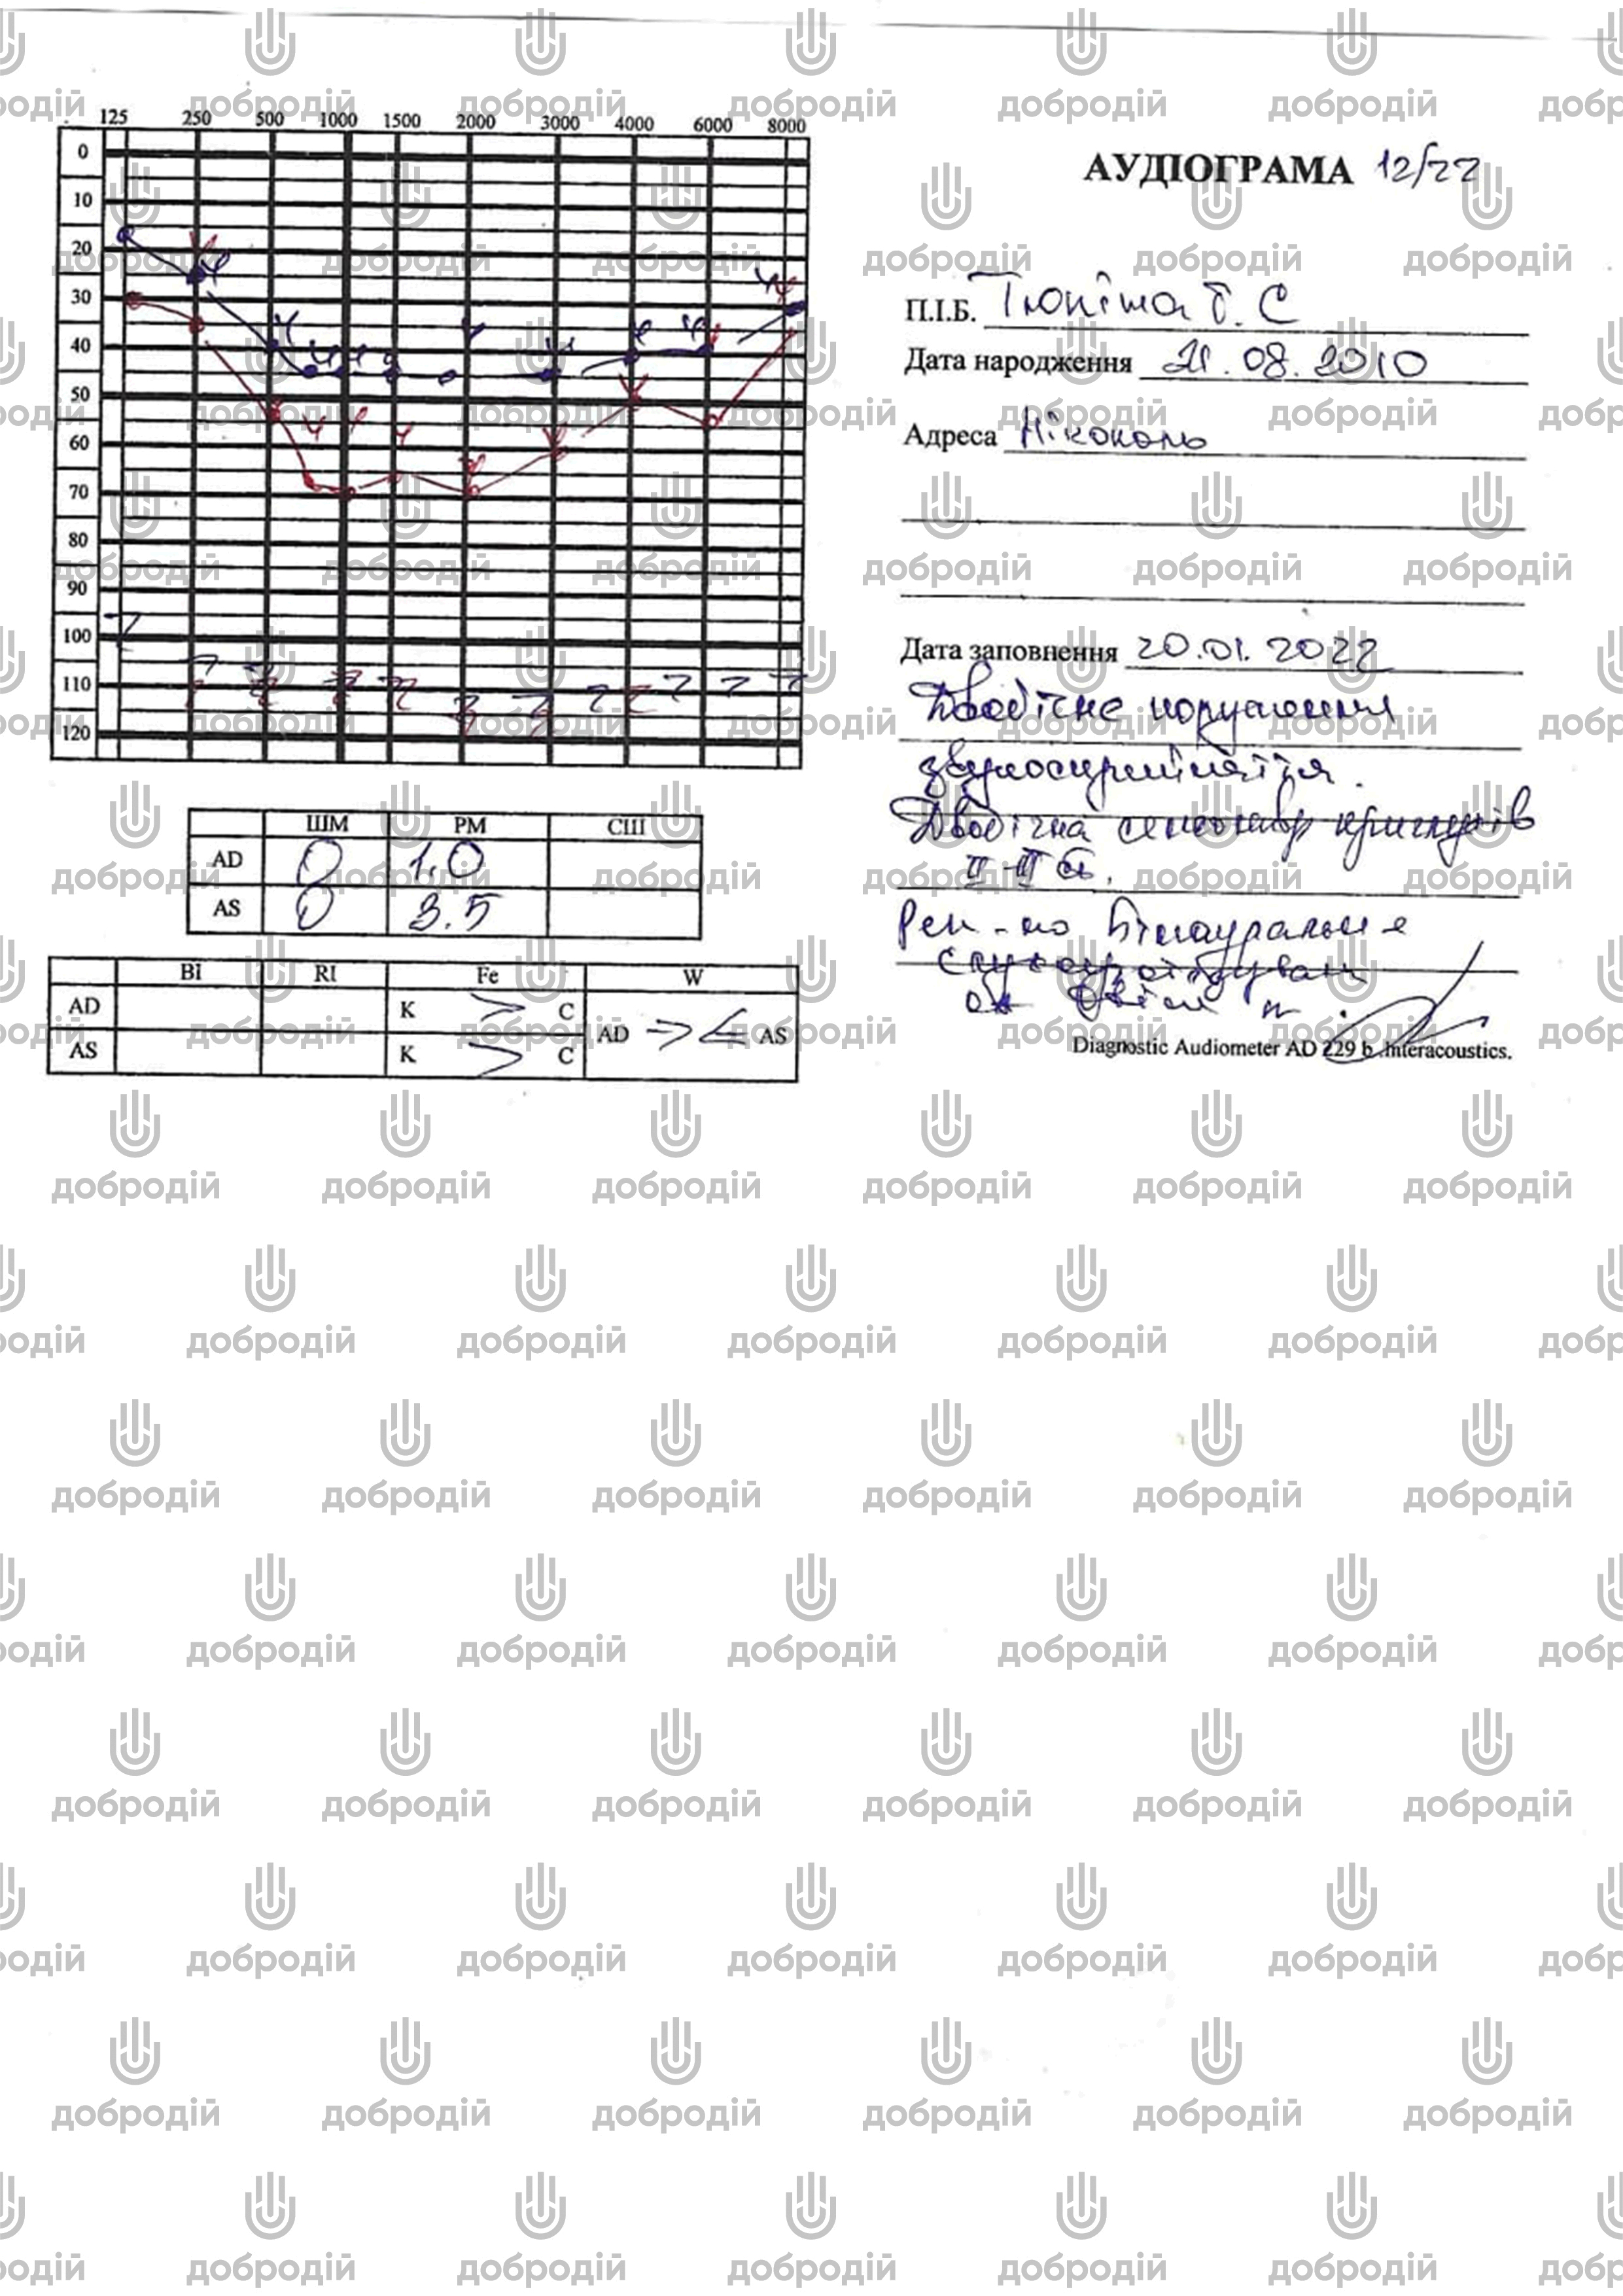 125 250 500 1000 1500 2000 3000 4000 6000 8000
0
10
20
30
40
50
60
70
80
90
100
110
120
ШМ РМ СШ
AD 0 1.0
AS 0 3.5
Bi RI Fe W
AD K > C AD AS
AS K > C
АУДІОГРАМА 12/22
П.І.Б.
Дата народження 21.08.2010
Адреса Нікополь
Дата заповнення 20.01.2022
Двобічне порушення
звукосприйняття.
Двобічна
II-III ст.
Рек-но бінауральне
Diagnostic Audiometer AD 229 b .Interacoustics.
добродій